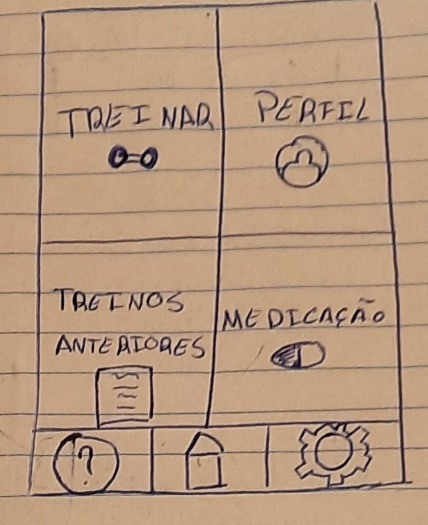 TREINAR
PERFIL
TREINOS
ANTERIORES
MEDICAÇÃO
?